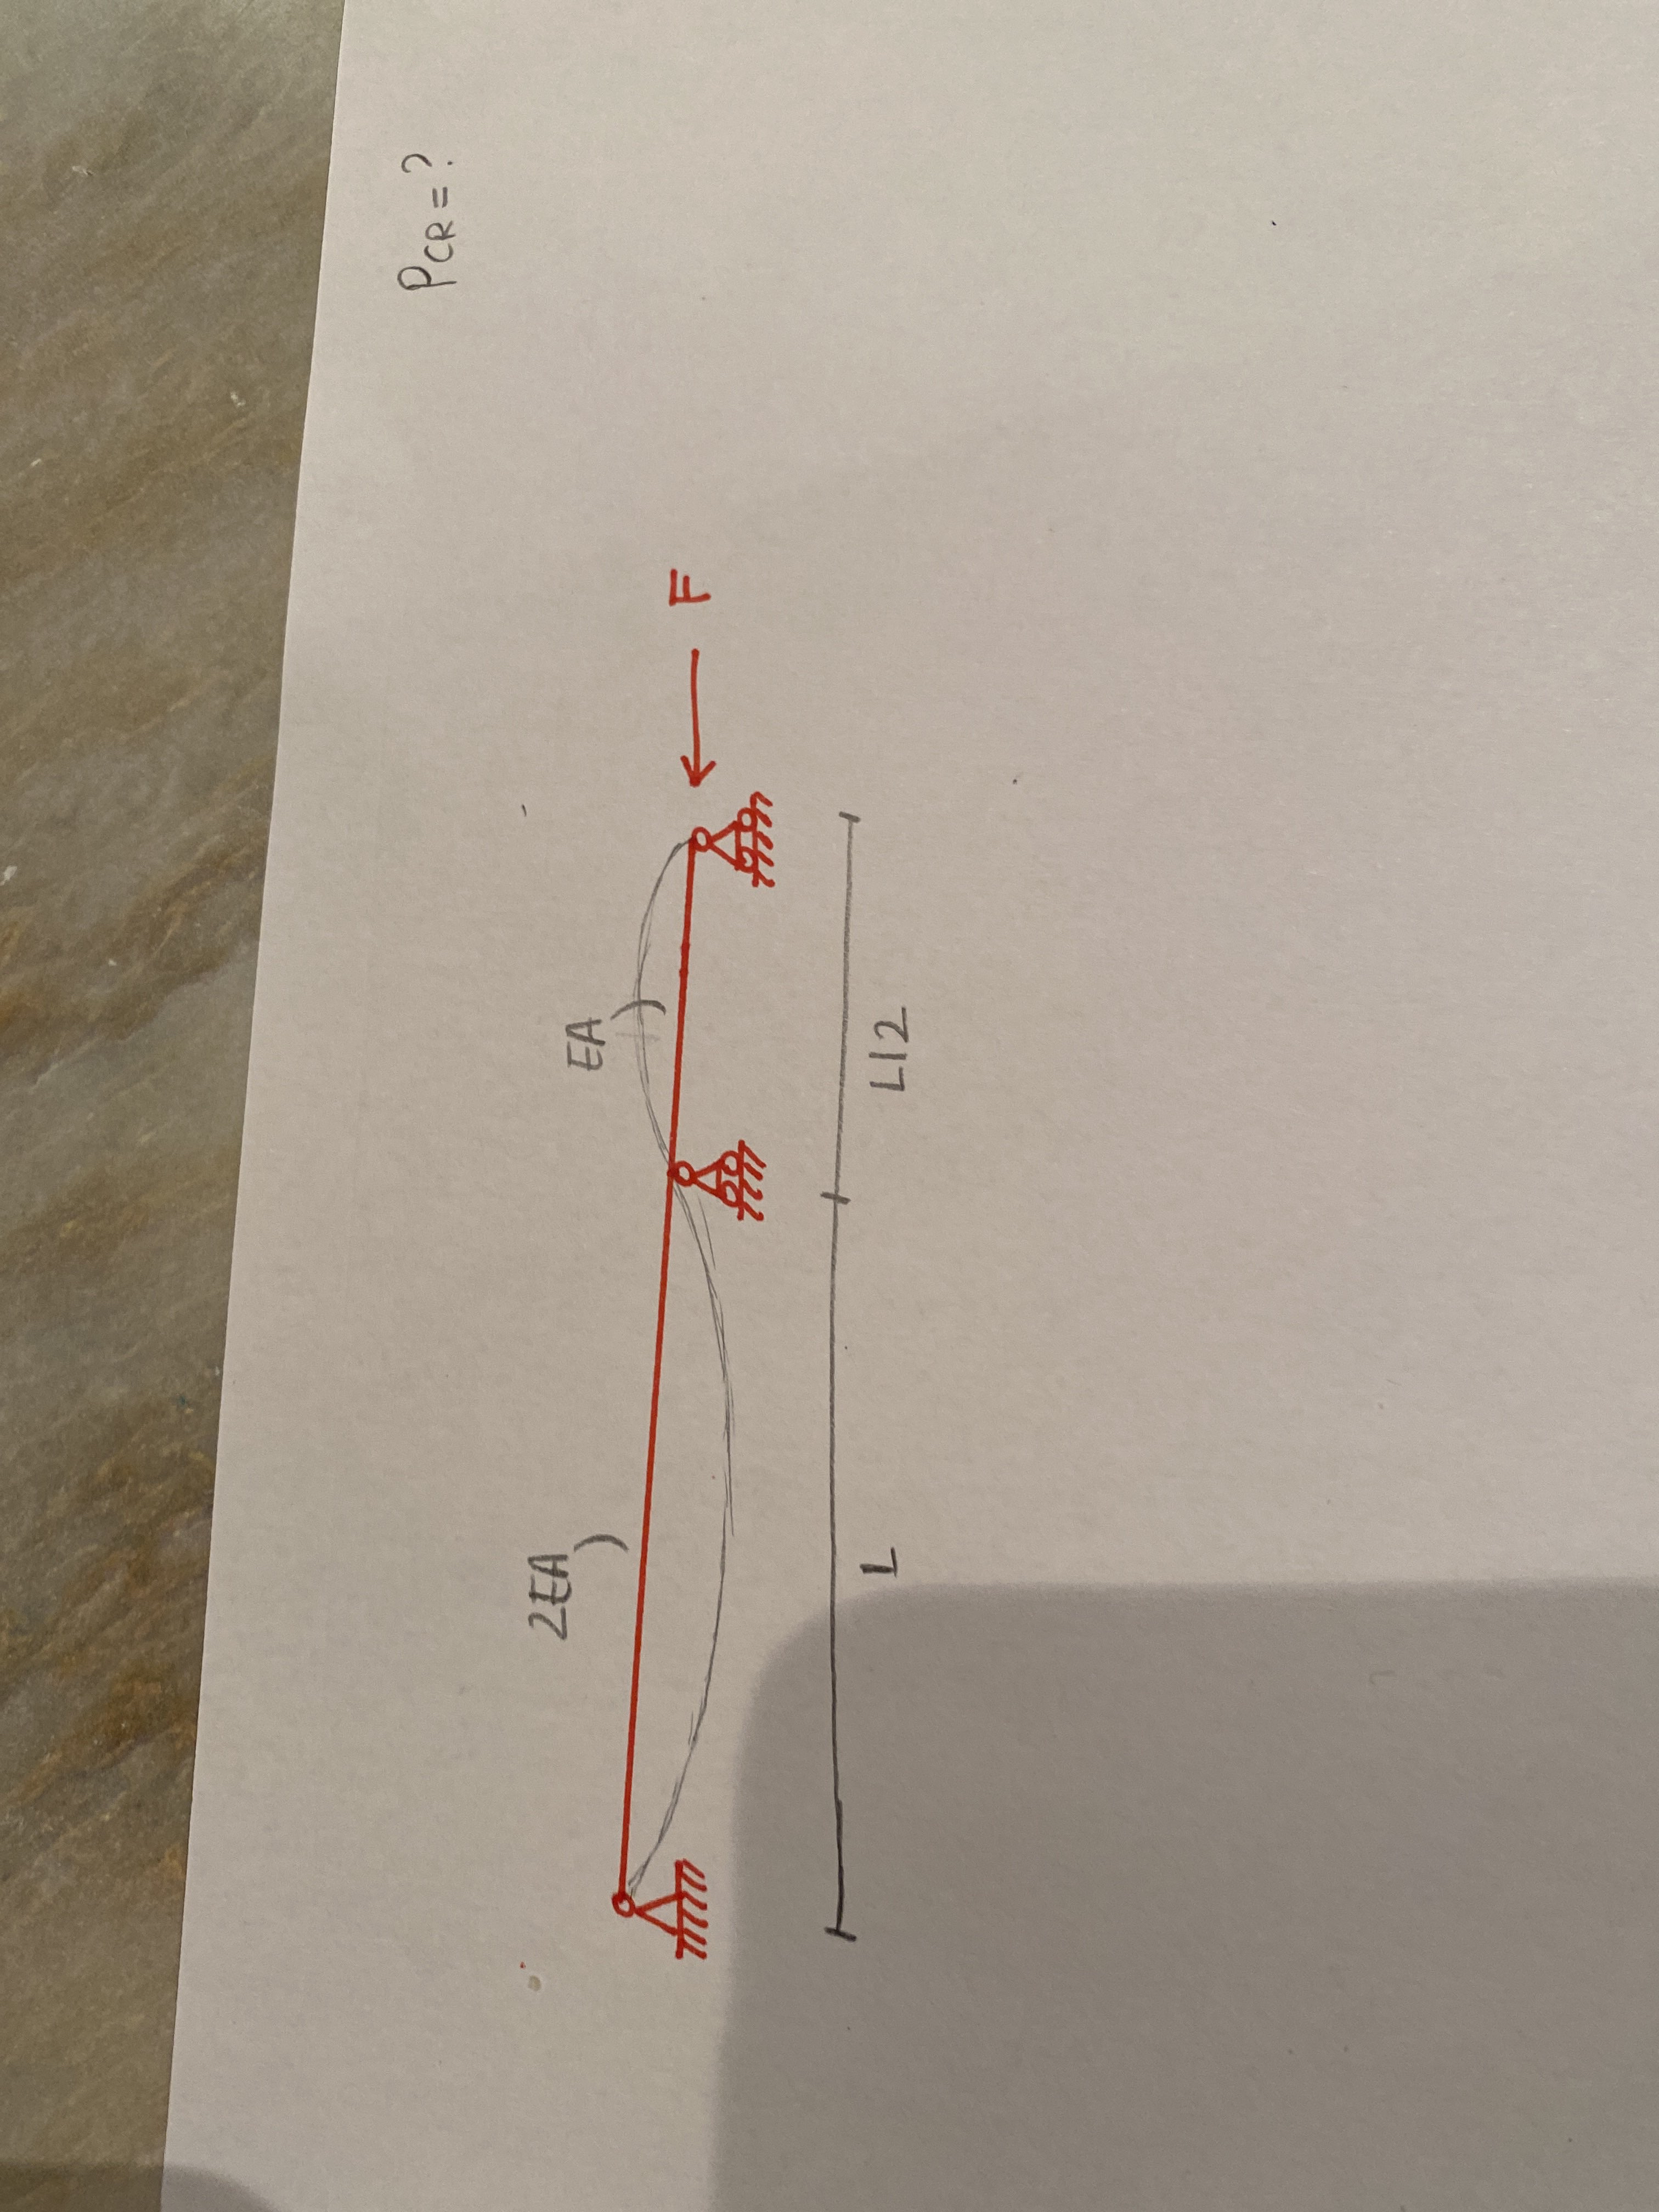 PCR=?
2EA
EA
F
L
L/2